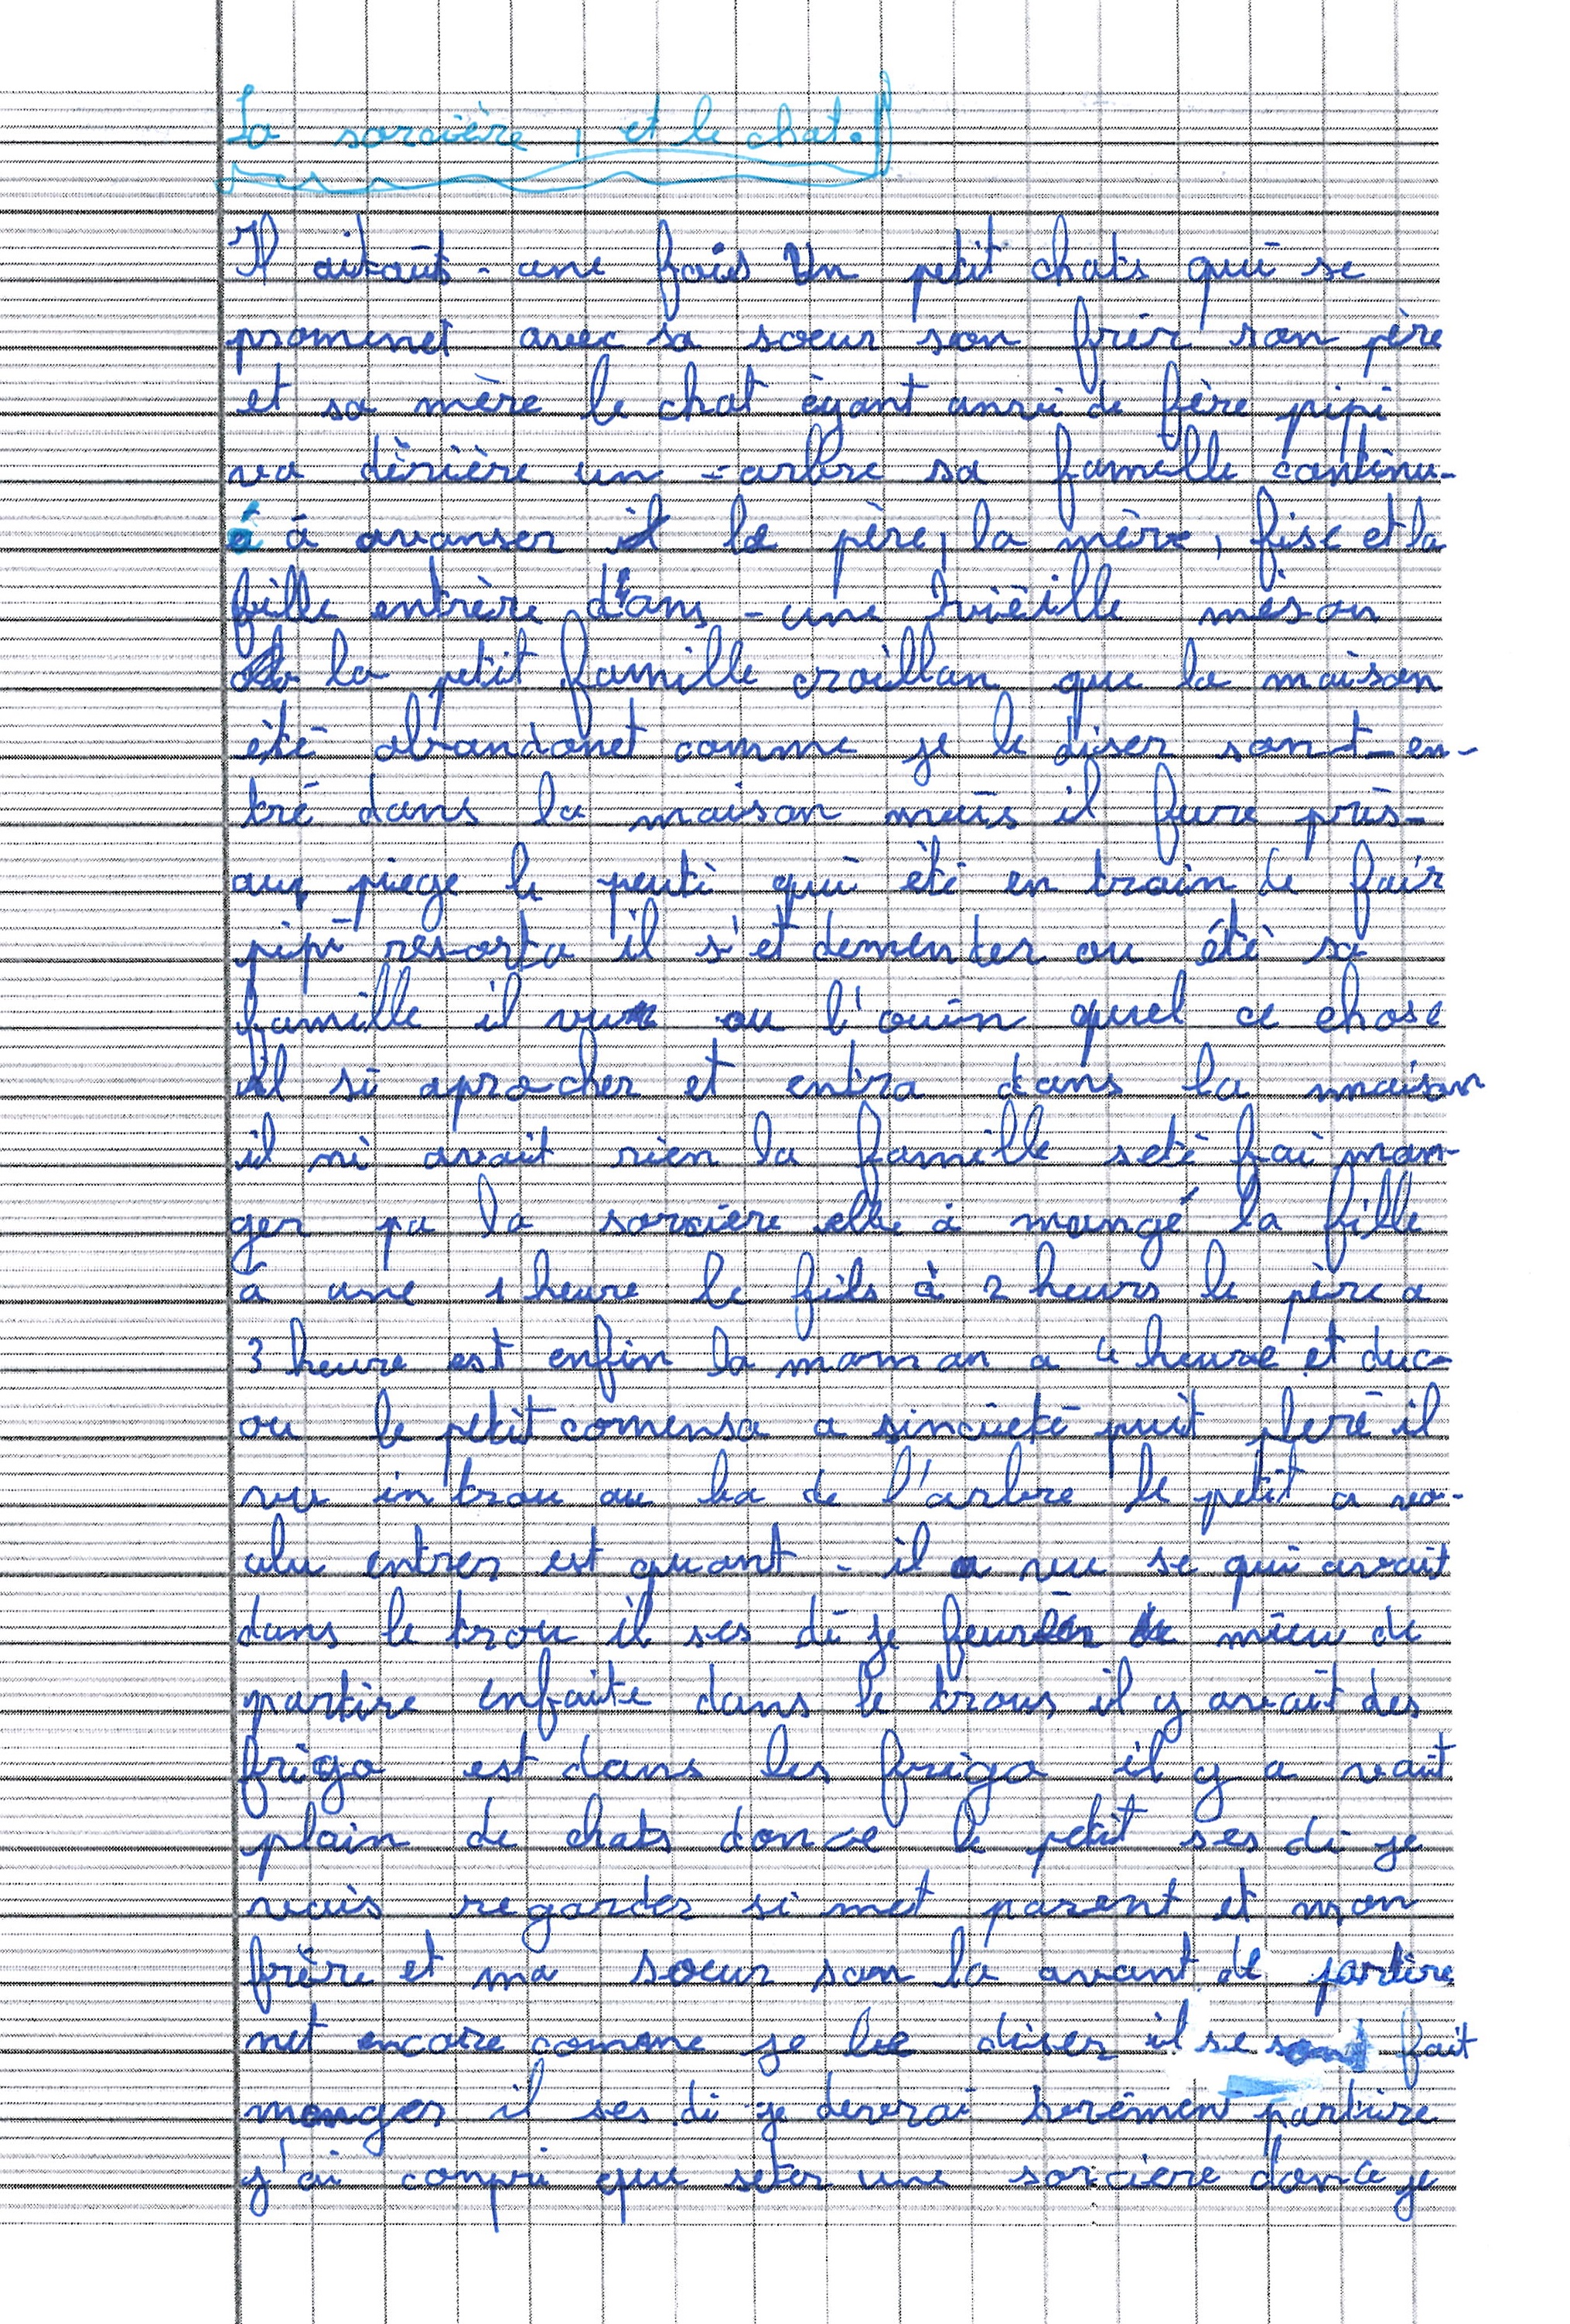 La sorcière, et le chat.
Il aitait - une fois Un petit chats qui se
promenet avec sa soeur son frèr son père
et sa mère le chat èyant anvi de fère pipi
va dèrière un - arbre sa famille continu-
é à avanser le père, la mère, fise et la
fille entrère d'ans - une vièille mèson
la petit famille croillan que la maison
été abandonet comme je le diser sont - en-
tré dans la maison mais il fure pris -
aux piege le peuti qui été en train de fair
pipi resorta il s'et dementer ou été sa
famille il vu au l'ouin quel ce chose
il si aprocher et entra dans la maison
il ni avait rien la famille seté fai man-
ger pa la sorcière elle à mangé la fille
à une 1 heure le fils à 2 heurs le père a
3 heure est enfin la maman a 4 heure et duc-
ou le petit comensa a sincièté puit pleré il
vu in trou au ba de l'arbre le petit a vo-
ulu entrer est quant - il a vu se qui avait
dans le trou il ses di je feurèr mieu de
partire enfaite dans le trous il y avait des
frigo est dans les frigo il y a vait
plain de chats donce le petit ses di je
vais regarder si met parent et mon
frère et ma soeur son la avant de partire
met encore comme je le diser il se sont fait
manger il ses di je deverai surèmen partire
j'ai conpri que seter une sorciere donce je